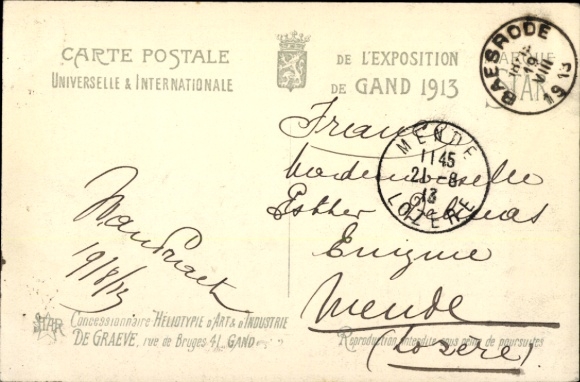 CARTE POSTALE
UNIVERSELLE & INTERNATIONALE
DE L'EXPOSITION
DE GAND 1913
STAR
BAESRODE
19
VIII
1913
MENDE
1145
21-8
13
LOZERE
France
Mademoiselle
Esther
Enigme
Mende
(Lozère)
19/8/13
STAR
Concessionnaire HÉLIOTYPIE D'ART & D'INDUSTRIE
DE GRAEVE, rue de Bruges 41, GAND
Reproduction interdite sous peine de poursuites